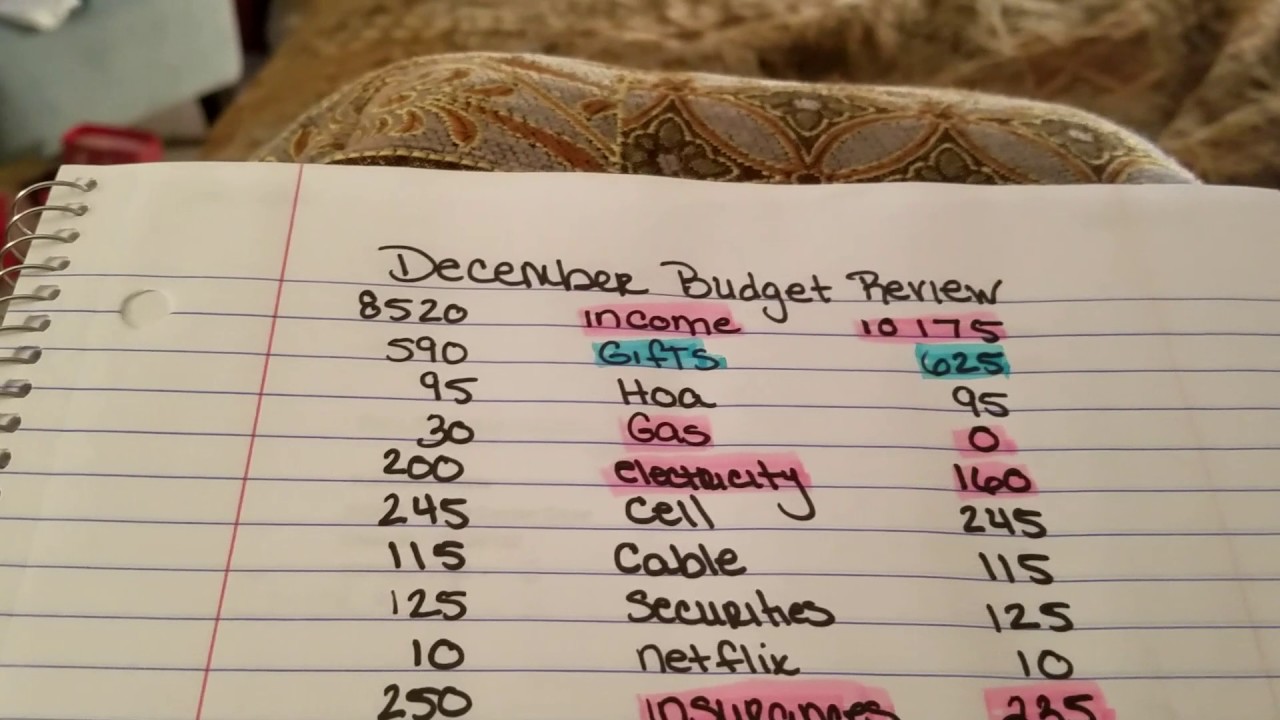 December Budget Review
8520 income 10175
590 Gifts 625
95 Hoa 95
30 Gas 0
200 electricity 160
245 Cell 245
115 Cable 115
125 Securities 125
10 netflix 10
250 insurances 235